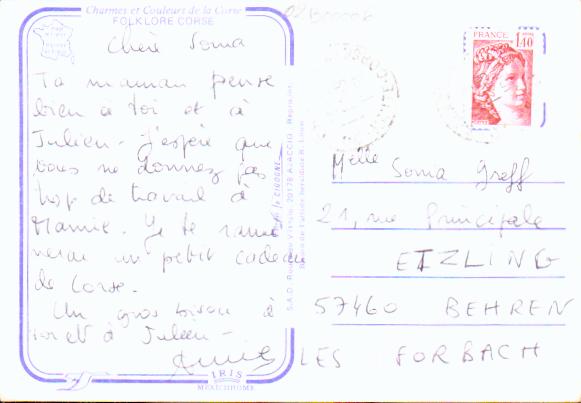 Charmes et Couleurs de la Corse
FOLKLORE CORSE
Chère Sonia
Ta maman pense
bien à toi et à
Julien - J'espère que
vous ne donnez pas
trop de travail à
Mamie. Je te ramè
nerai un petit cadeau
de Corse.
Un gros bisou à
toi et à Julien -
IRIS
MEXICHROME
FRANCE
1,40
Melle Sonia Greff
21, rue Principale
ETZLING
57460 BEHREN
LES FORBACH